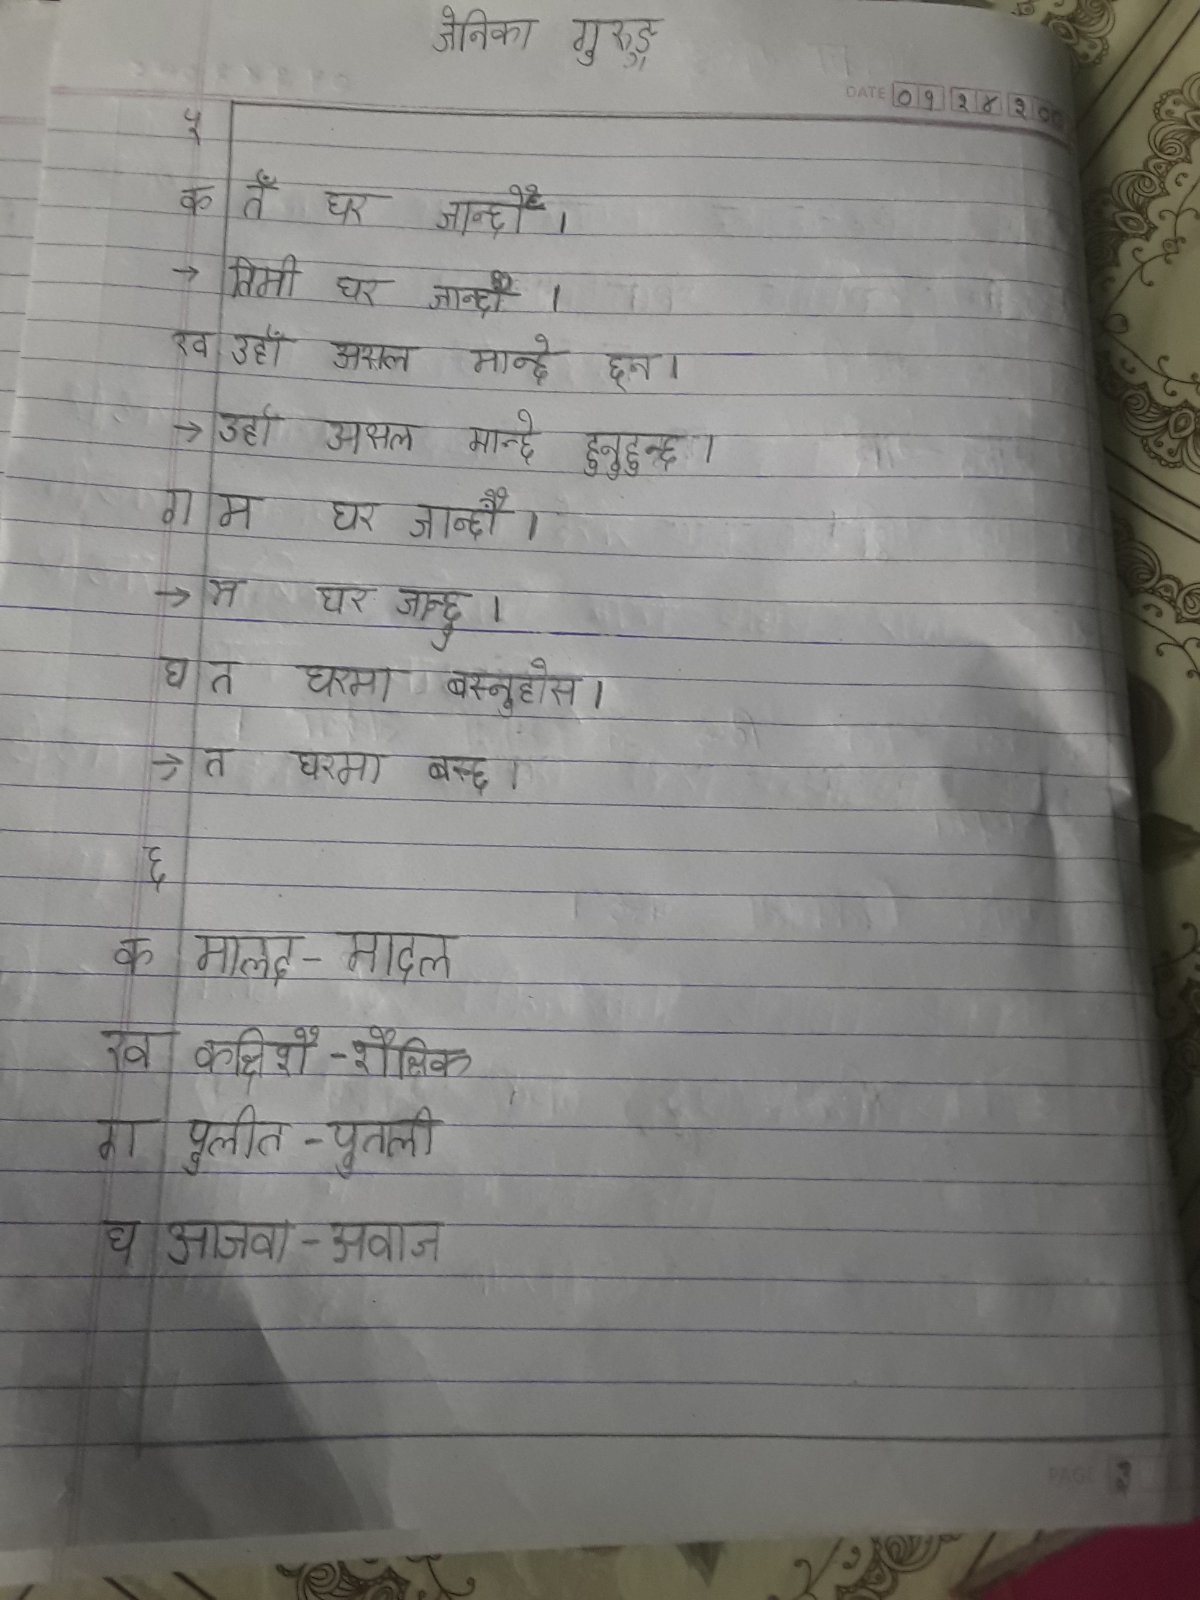 जेनिका गुरुङ
DATE ०१ २४ २०
५
क तँ घर जान्छौ ।
→ तिमी घर जान्छौ ।
ख उहाँ असल मान्छे छन ।
→ उहाँ असल मान्छे हुनुहुन्छ ।
ग म घर जान्छौ ।
→ म घर जान्छु ।
घ त घरमा बस्नुहोस ।
→ त घरमा बस्छ ।
६
क मालद - मादल
ख कक्षिशै - शैक्षिक
ग पुलीत - पुतली
घ आजवा - अवाज
PAGE